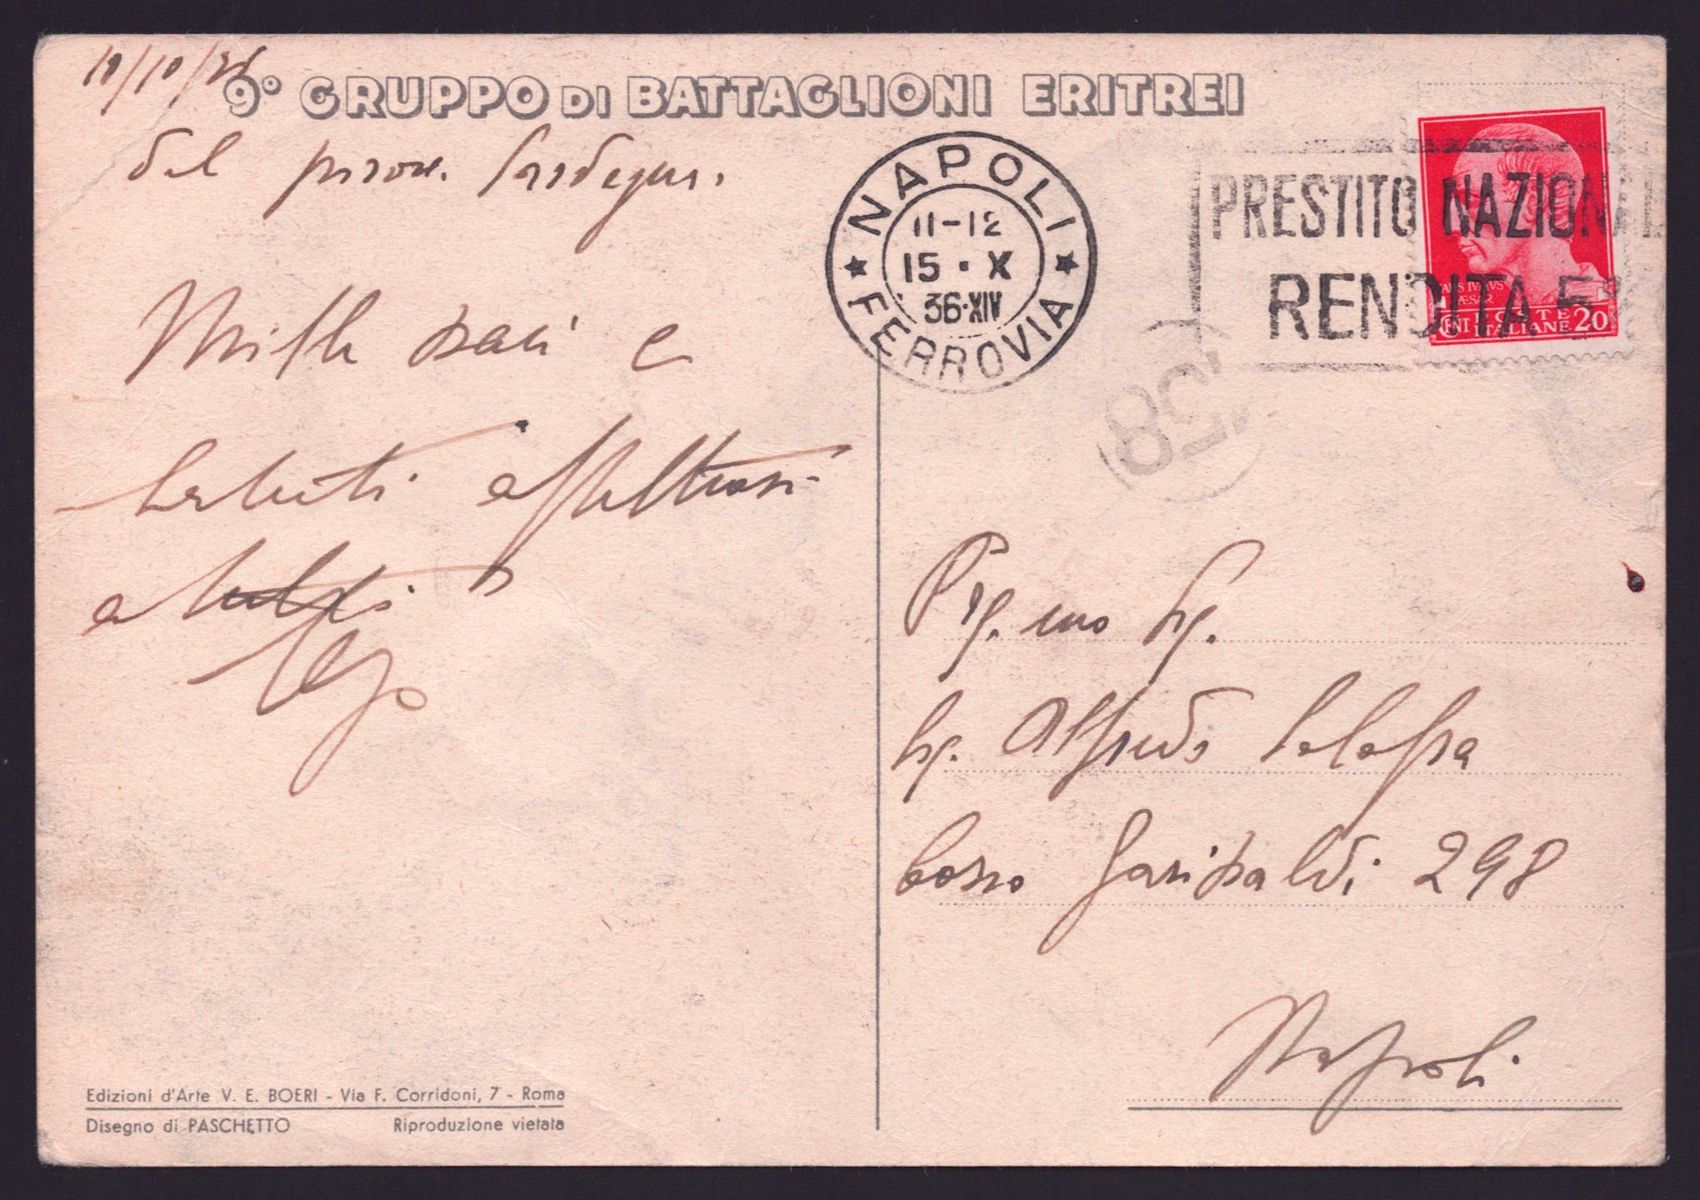 10/10/36
9° GRUPPO DI BATTAGLIONI ERITREI
dal pirosc. Sardegna.
Mille baci e
saluti affettuosi
a tutti
NAPOLI FERROVIA
11-12
15·X
36·XIV
PRESTITO NAZIONALE
RENDITA 5%
CENT 20
POSTE
ITALIANE
158
Preg.mo Sig.
Sig. Alfredo
Corso Garibaldi 298
Napoli
Edizioni d'Arte V. E. BOERI - Via F. Corridoni, 7 - Roma
Disegno di PASCHETTO Riproduzione vietata